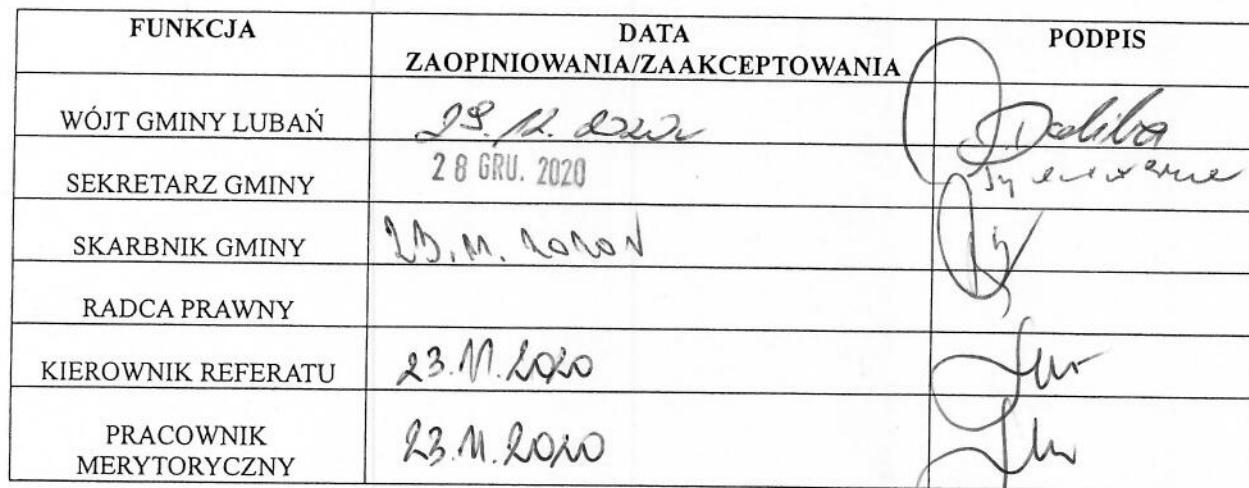 FUNKCJA DATA PODPIS
ZAOPINIOWANIA/ZAAKCEPTOWANIA
WÓJT GMINY LUBAŃ 29.12.2020r
SEKRETARZ GMINY 28 GRU. 2020
SKARBNIK GMINY
RADCA PRAWNY
KIEROWNIK REFERATU 23.11.2020
PRACOWNIK
MERYTORYCZNY 23.11.2020